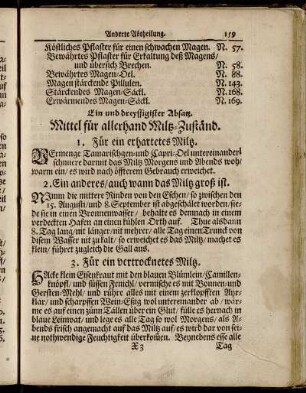 Anderte Abtheilung. 159
Köstliches Pflaster für einen schwachen Magen. N. 57.
Bewährtes Pflaster für Erkaltung deß Magens/
und übersich Brechen. N. 58.
Bewährtes Magen-Oel. N. 88.
Magen stärckende Pillulen. N. 143.
Stärckendes Magen-Säckl. N. 168.
Erwärmendes Magen-Säckl. N. 169.
Ein und dreyssigister Absatz.
Mittel für allerhand Miltz-Zuständ.
1. Für ein erhartetes Miltz.
VErmenge Tamariscen- und Capri-Oel untereinander/
schmiere darmit das Miltz Morgens und Abends wohl
warm ein/ es wird nach öffterem Gebrauch erweichet.
2. Ein anderes/ auch wann das Miltz groß ist.
NImm die mittere Rinden von den Eschen/ so zwischen den
15. Augusti/ und 8. September ist abgeschälet worden/ sie-
de sie in einem Bronnenwasser/ behalte es demnach in einem
verdeckten Hafen an einen kühlen Orth auf. Thue alsdann
8. Tag lang/ mit länger/ mit mehrer/ alle Tag einen Trunck von
disem Wasser nit zu kalt/ so erweichet es das Miltz/ machet es
klein/ führet zugleich die Gall aus.
3. Für ein vertrocknetes Miltz.
HAcke klein Eisenkraut mit den blauen Blümlein/ Camillen-
knöpff/ und süssen Fenichl/ vermische es mit Bonnen- und
Gersten-Mehl/ und rühre alles mit einem zerklopfften Ayr-
klar/ und scharpffen Wein-Essig wol untereinander ab/ wär-
me es auf einen zinn Tällen über ein Glut/ fülle es hernach in
blaue Leinwat/ und lege es alle Tag so wol Morgens/ als A-
bends frisch angemacht auf das Miltz auf/ es wird dar von sei-
ne nothwendige Feuchtigkeit überkommen. Beynebens esse alle
X 3 Tag